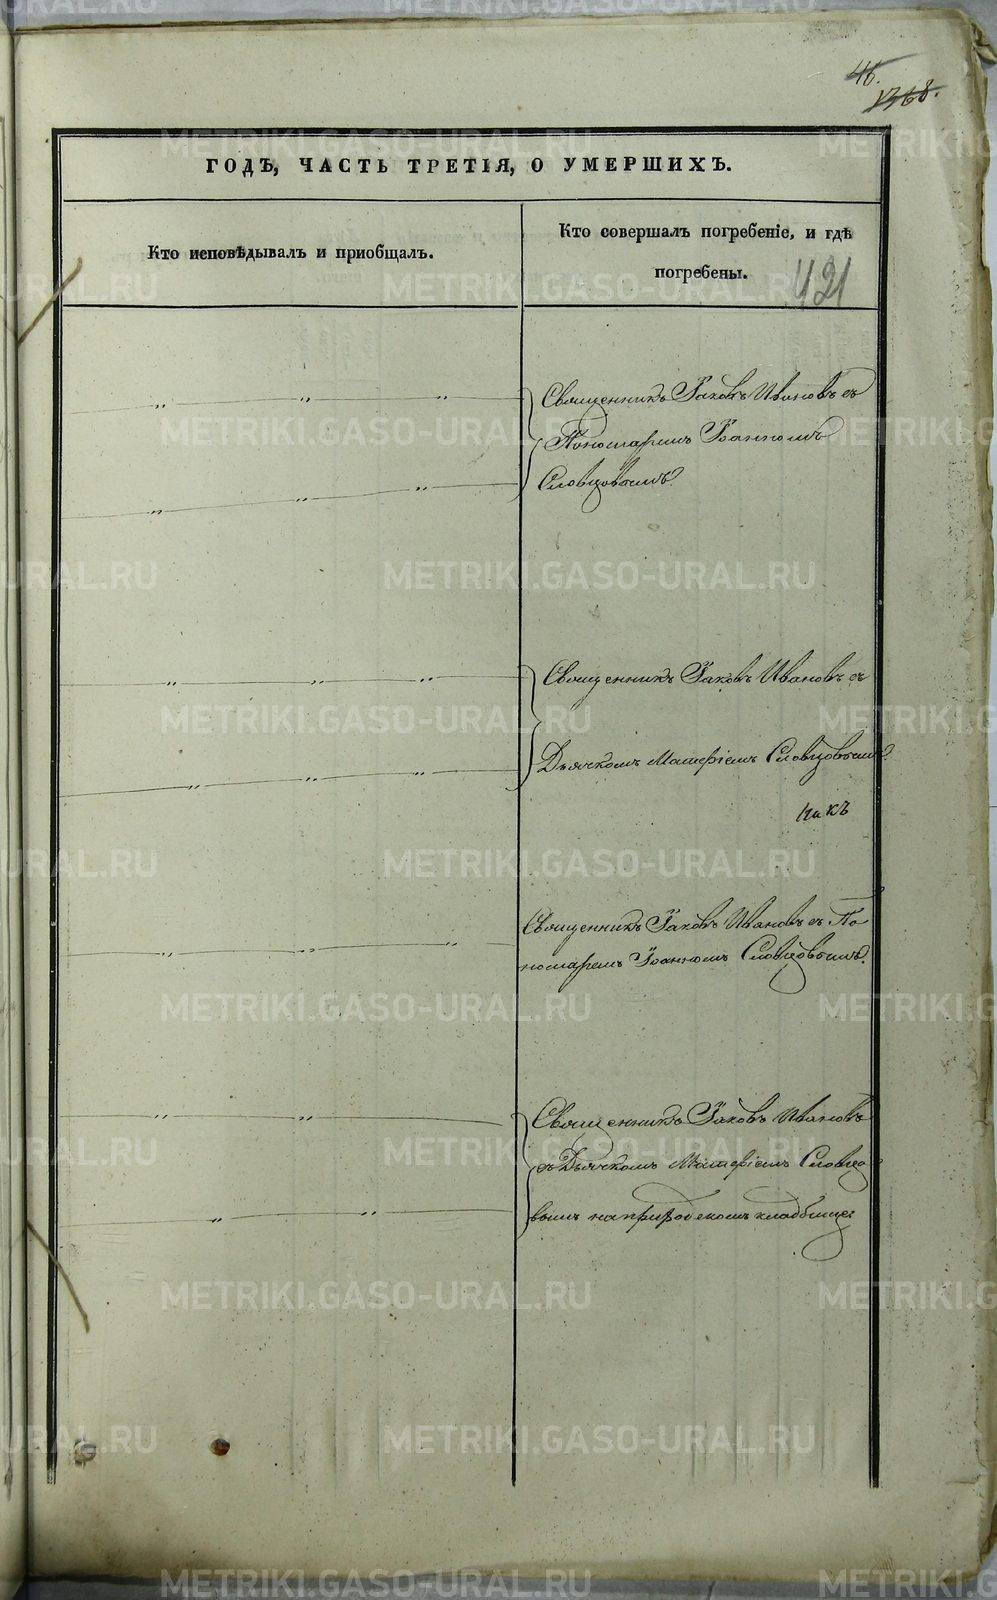 46.
1368.
ГОДЪ, ЧАСТЬ ТРЕТІЯ, О УМЕРШИХЪ.
Кто исповѣдывалъ и пріобщалъ.
Кто совершалъ погребеніе, и гдѣ
погребены.
421
Священникъ Іаковъ Ивановъ съ
Пономаремъ Іоанномъ
Словцовымъ.
Священникъ Іаковъ Ивановъ съ
Дьячкомъ Матѳіемъ Словцовымъ
Священникъ Іаковъ Ивановъ съ По
номаремъ Іоанномъ Словцовымъ.
Священникъ Іаковъ Ивановъ
съ Дьячкомъ Матѳіемъ Словцо
вымъ на приходскомъ кладбищѣ
METRIKI.GASO-URAL.RU